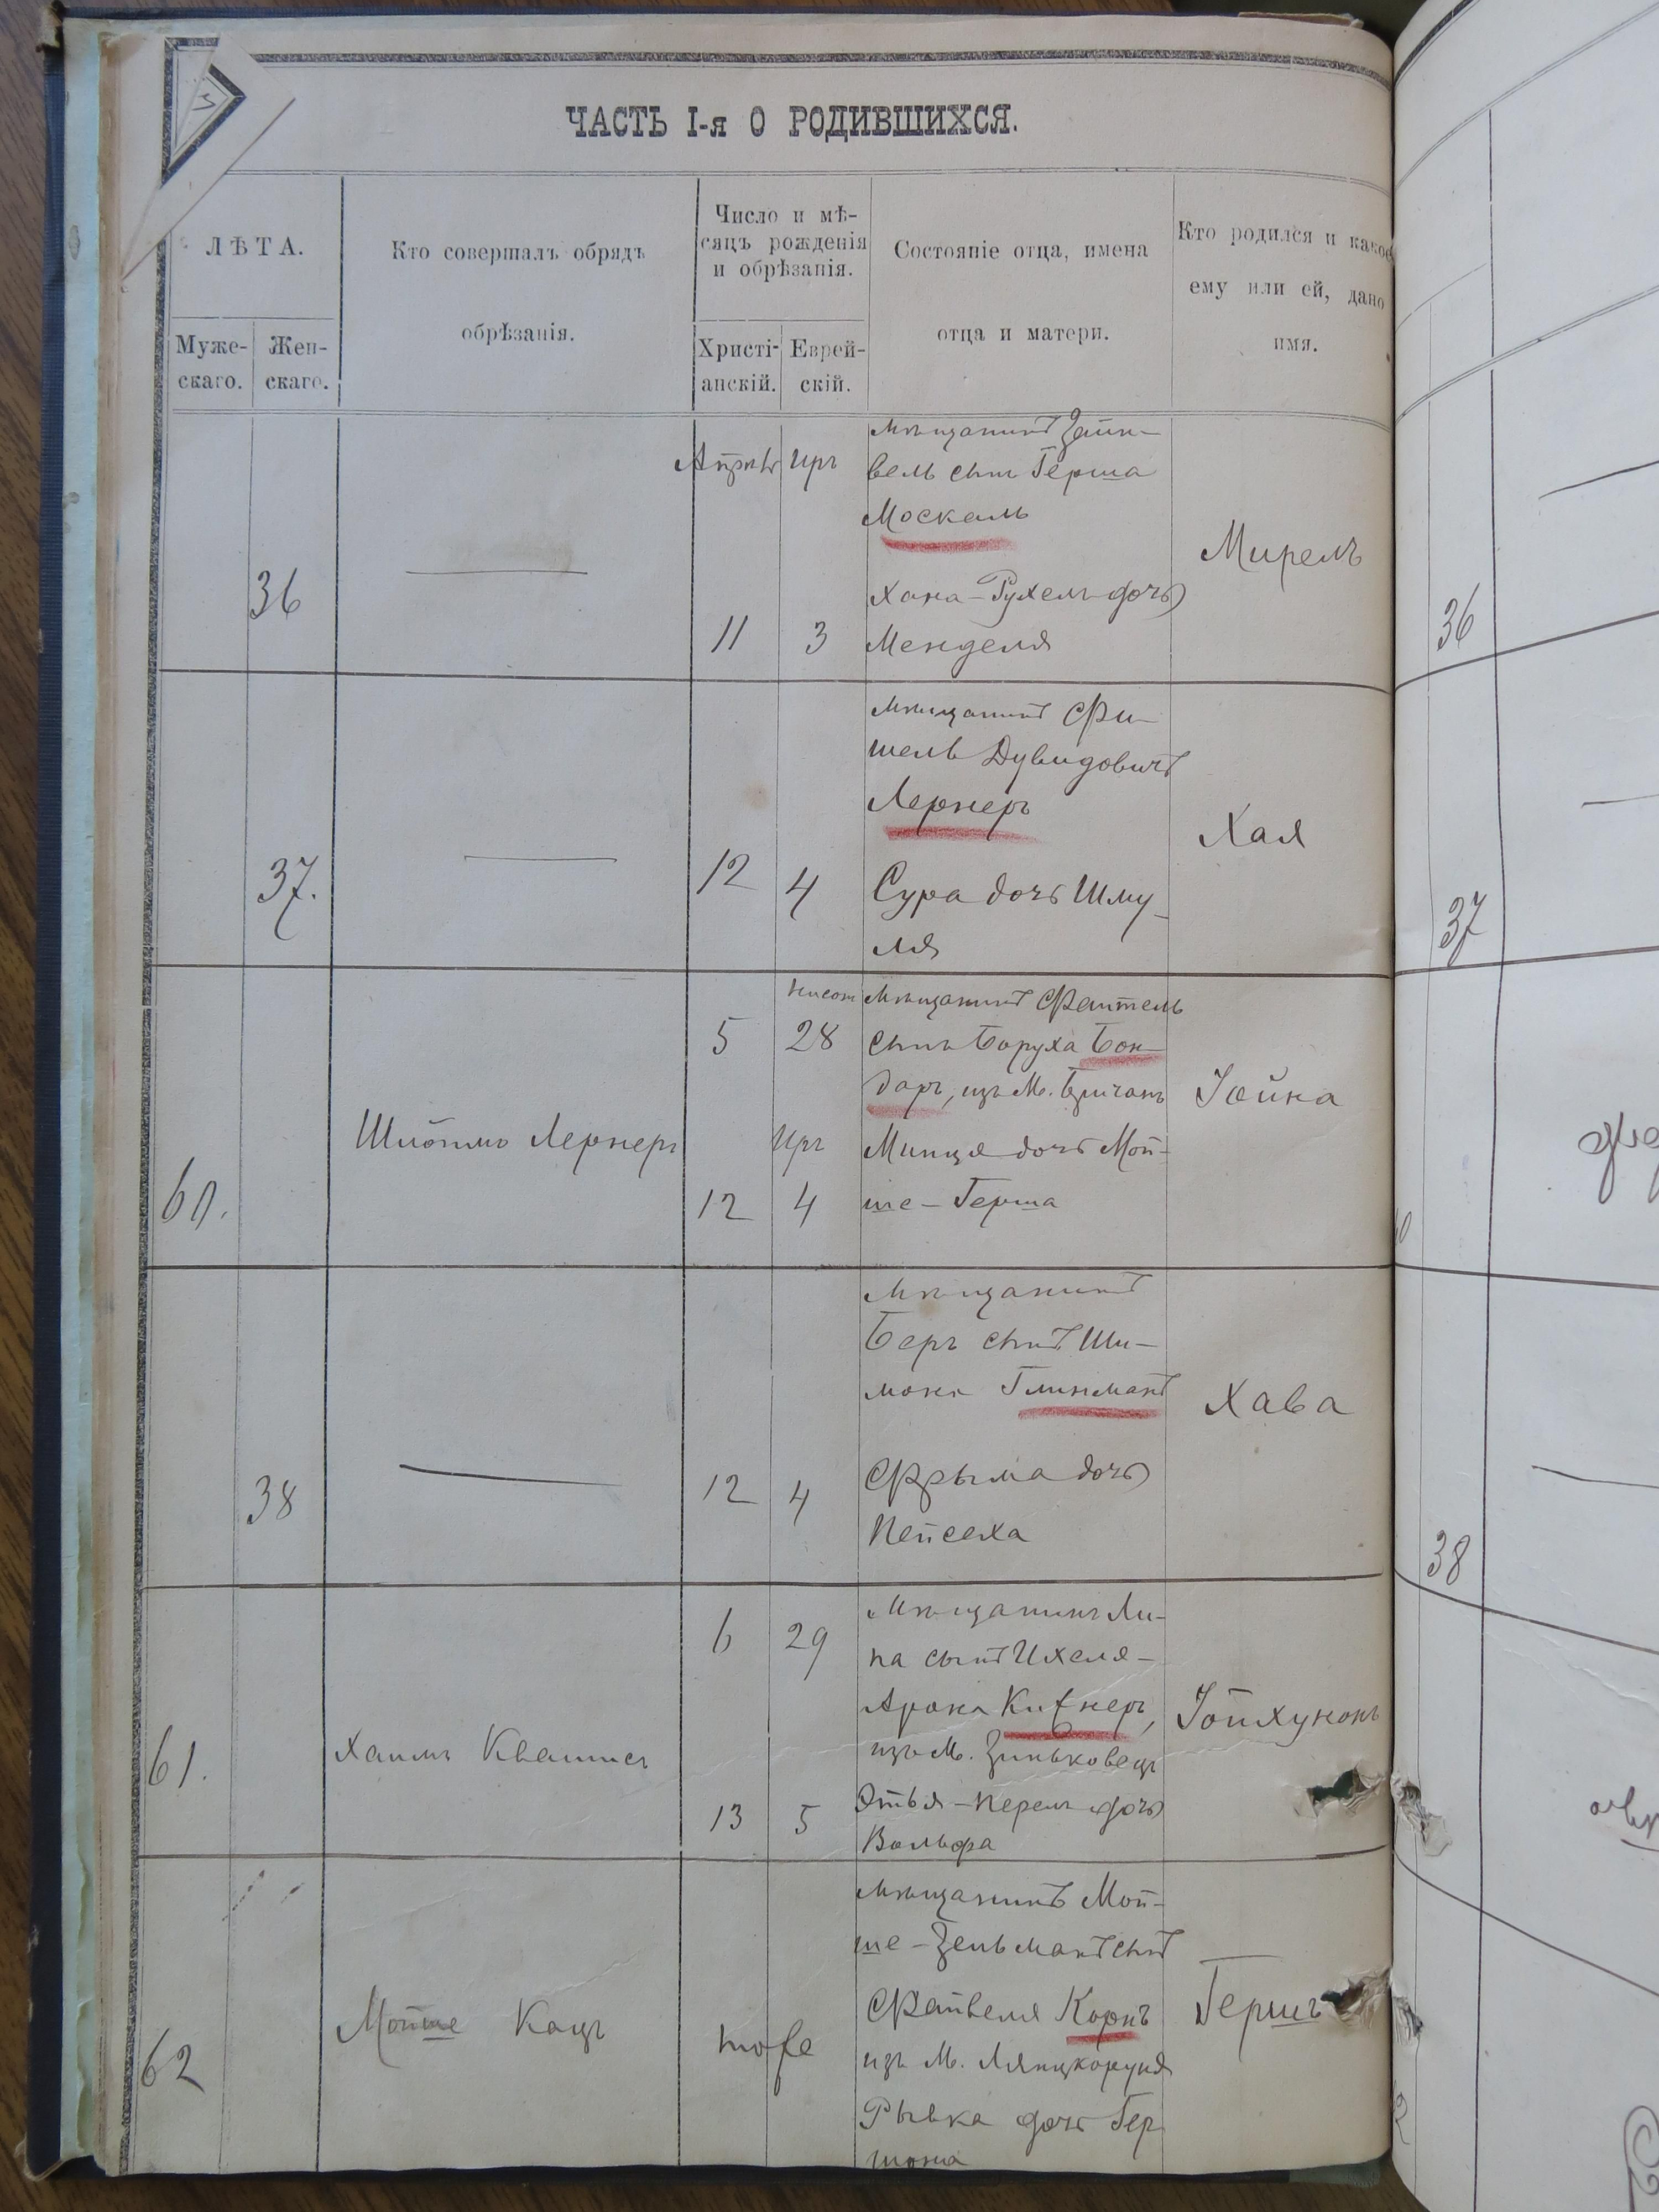 3
ЧАСТЬ I-я О РОДИВШИХСЯ.
ЛѢТА.
Муже-
скаго.
Жен-
скаго.
Кто совершалъ обрядъ
обрѣзанія.
Число и мѣ-
сяцъ рожденія
и обрѣзанія.
Христі-
анскій.
Еврей-
скій.
Состояніе отца, имена
отца и матери.
Кто родился и какое
ему или ей, дано
имя.
36
Апрѣль Иръ
11 3
Мѣщанинъ Зейн-
вель сынъ Герша
Москаль
Хана-Рухель дочь
Менделя
Мирель
36
37.
12 4
Мѣщанинъ Фи-
шель Дувидовичъ
Лернеръ
Сура дочь Шму-
ля
Хая
37
60.
Шлёмо Лернеръ
Нисонъ
5 28
Иръ
12 4
Мѣщанинъ Файтель
сынъ Боруха Бон-
даръ, изъ М. Бричанъ
Минця дочь Мой-
ше-Герша
Іойна
38
12 4
Мѣщанинъ
Беръ сынъ Ши-
мона Глинманъ
Фрыма дочь
Пейсеха
Хава
38
61.
Хаимъ
6 29
13 5
Мѣщанинъ Ли-
па сынъ Ихеля-
Арона Китнеръ,
изъ М. Зиньковецъ
Этья-Перель дочь
Вольфа
Іойлхунонъ
62
Мойше Кацъ
тоже
Мѣщанинъ Мой-
ше-Зельманъ сынъ
Файвеля Корнъ
изъ М. Лянцкоруня
Рывка дочь Гер
шона
Гершъ